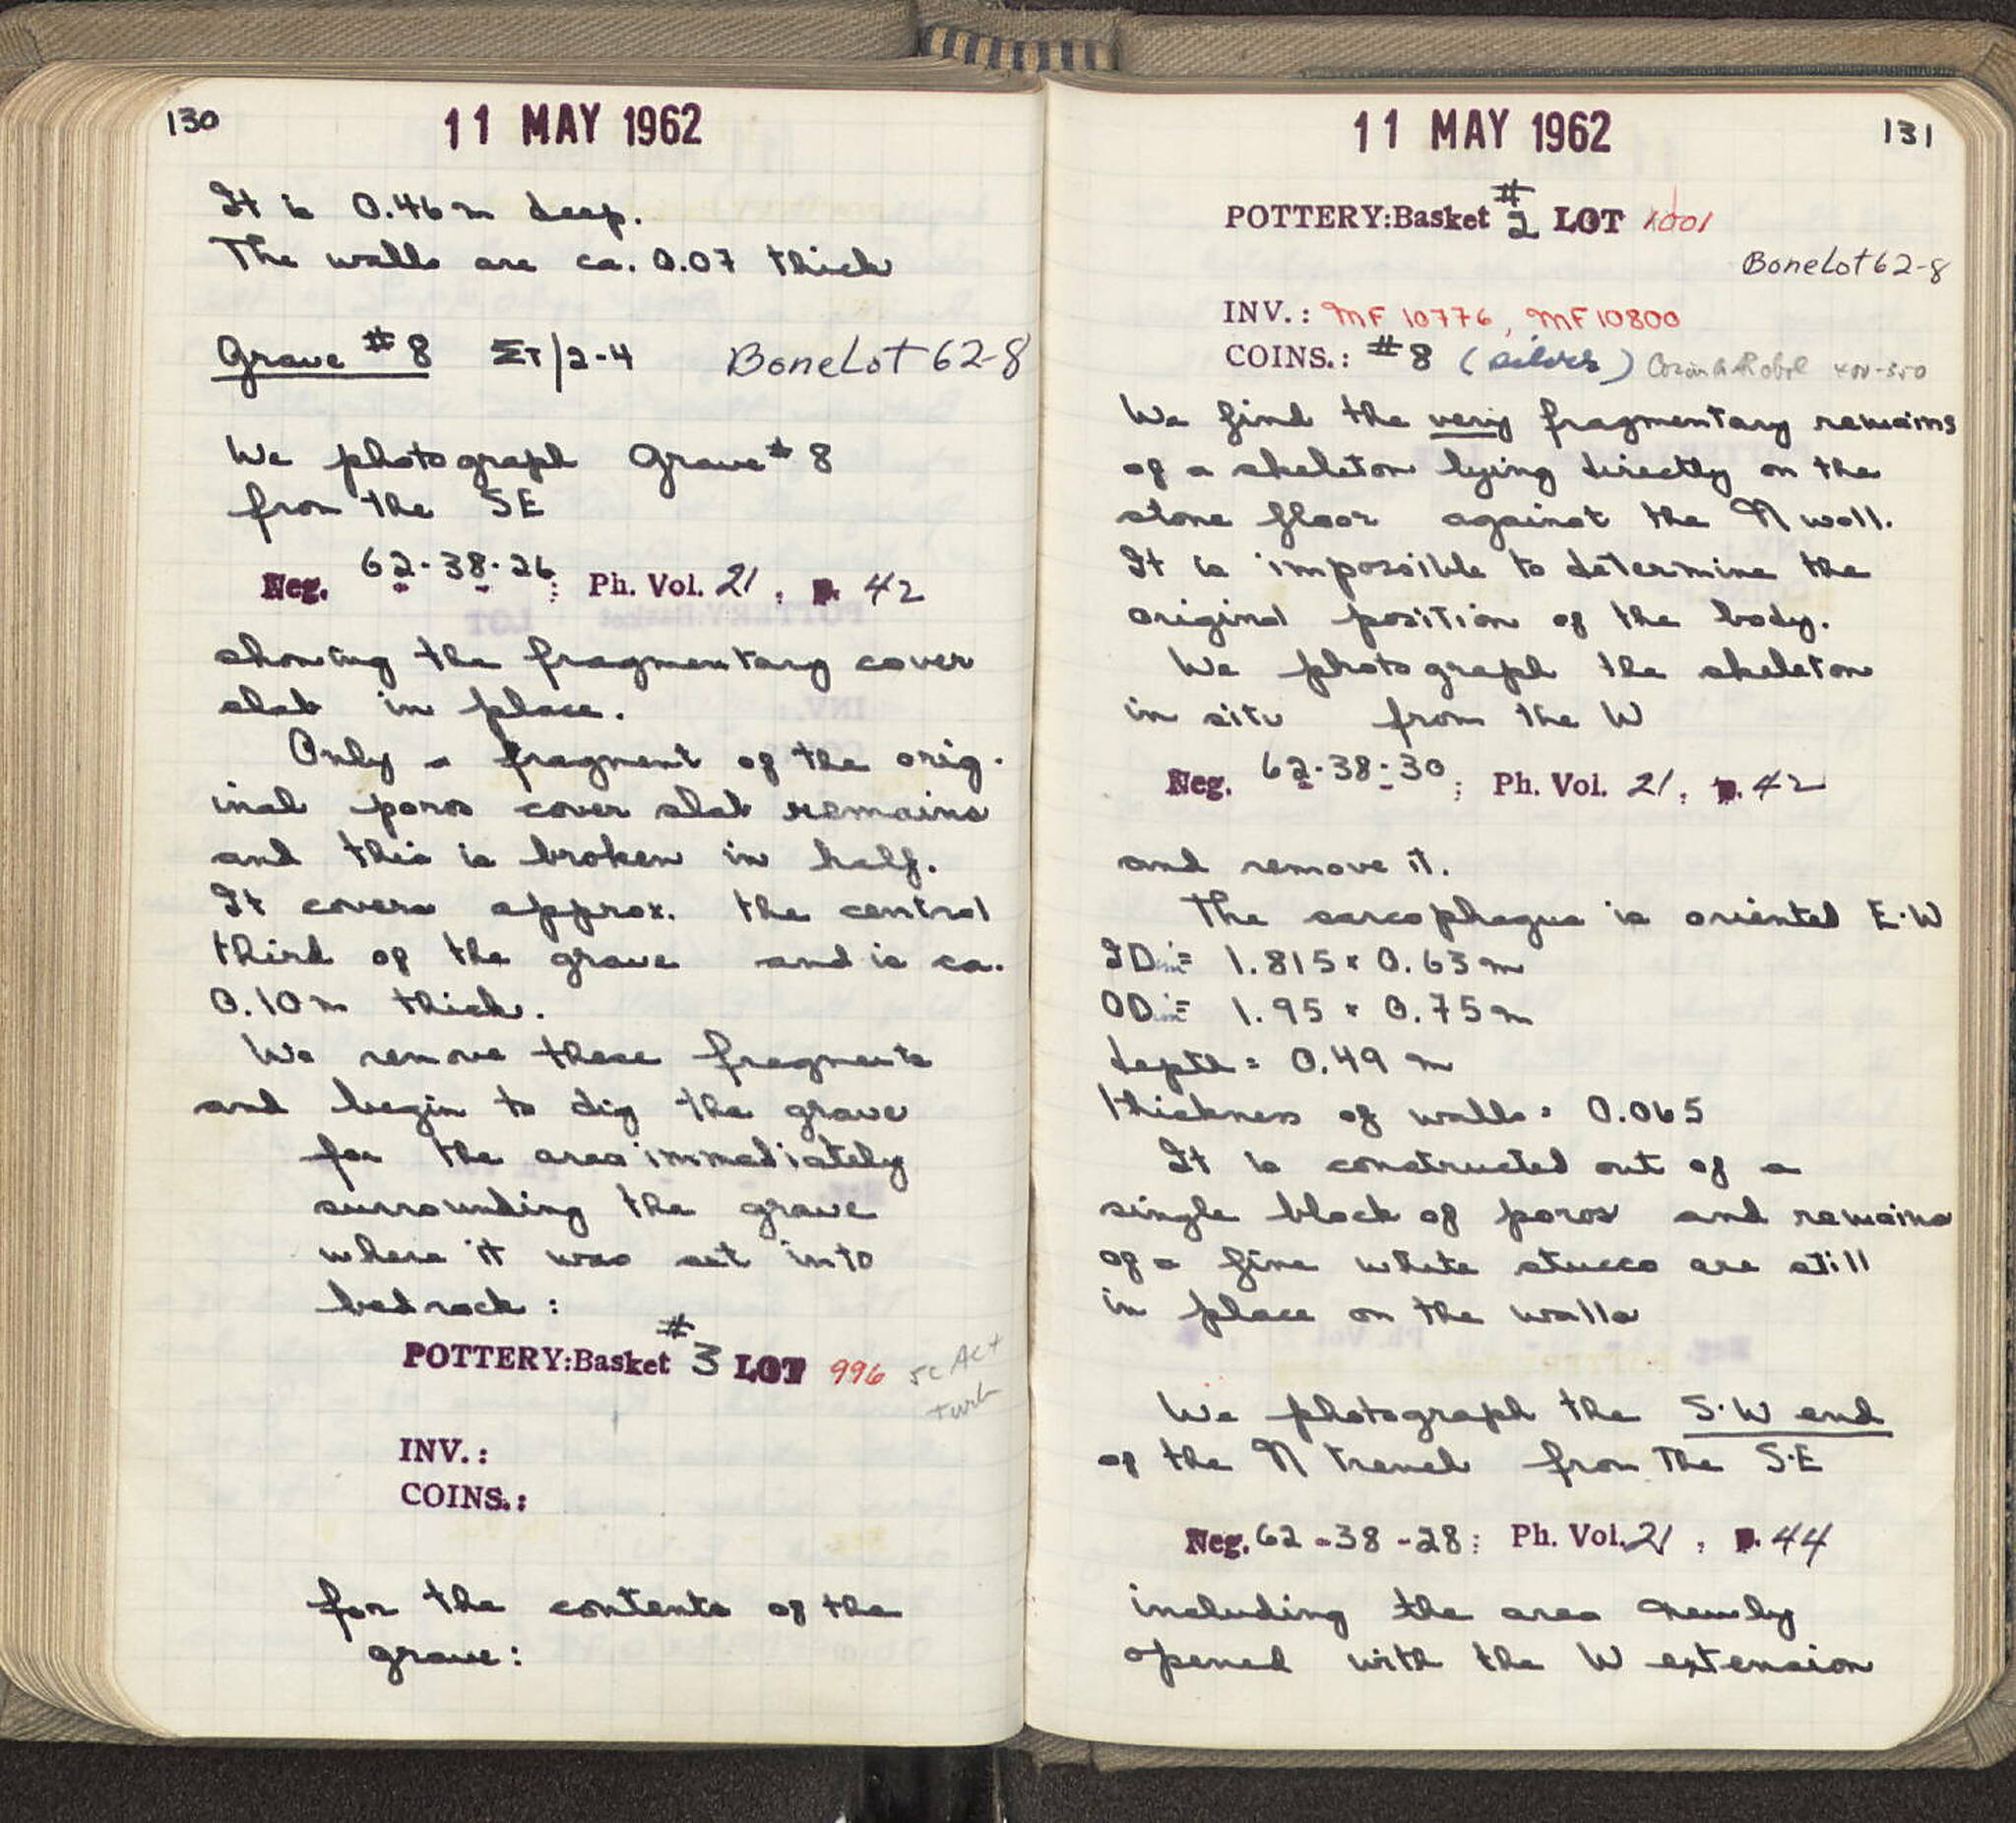 130
11 MAY 1962
It is 0.46 m deep.
The walls are ca. 0.07 thick
Grave #8 ΣT/2-4 Bone Lot 62-8
We photograph Grave #8
from the SE
Neg. 62-38-26; Ph. Vol. 21, p. 42
showing the fragmentary cover
slab in place.
Only a fragment of the orig-
inal poros cover slab remains
and this is broken in half.
It covers approx. the central
third of the grave and is ca.
0.10 m thick.
We remove these fragments
and begin to dig the grave
for the area immediately
surrounding the grave
where it was set into
bedrock:
POTTERY: Basket #3 LOT 996 5c AC+
turb
INV.:
COINS.:
for the contents of the
grave:
11 MAY 1962
131
POTTERY: Basket #2 LOT 1001
Bone Lot 62-8
INV.: MF 10776, MF 10800
COINS.: #8 (silver) Corinth Obol 400-350
We find the very fragmentary remains
of a skeleton lying directly on the
stone floor against the N wall.
It is impossible to determine the
original position of the body.
We photograph the skeleton
in situ from the W
Neg. 62-38-30; Ph. Vol. 21, p. 42
and remove it.
The sarcophagus is oriented E-W
IDim= 1.815 x 0.63 m
ODim= 1.95 x 0.75 m
depth = 0.49 m
thickness of walls = 0.065
It is constructed out of a
single block of poros and remains
of a fine white stucco are still
in place on the walls
We photograph the S-W end
of the N trench from the S-E
Neg. 62-38-28; Ph. Vol. 21, p. 44
including the area newly
opened with the W extension